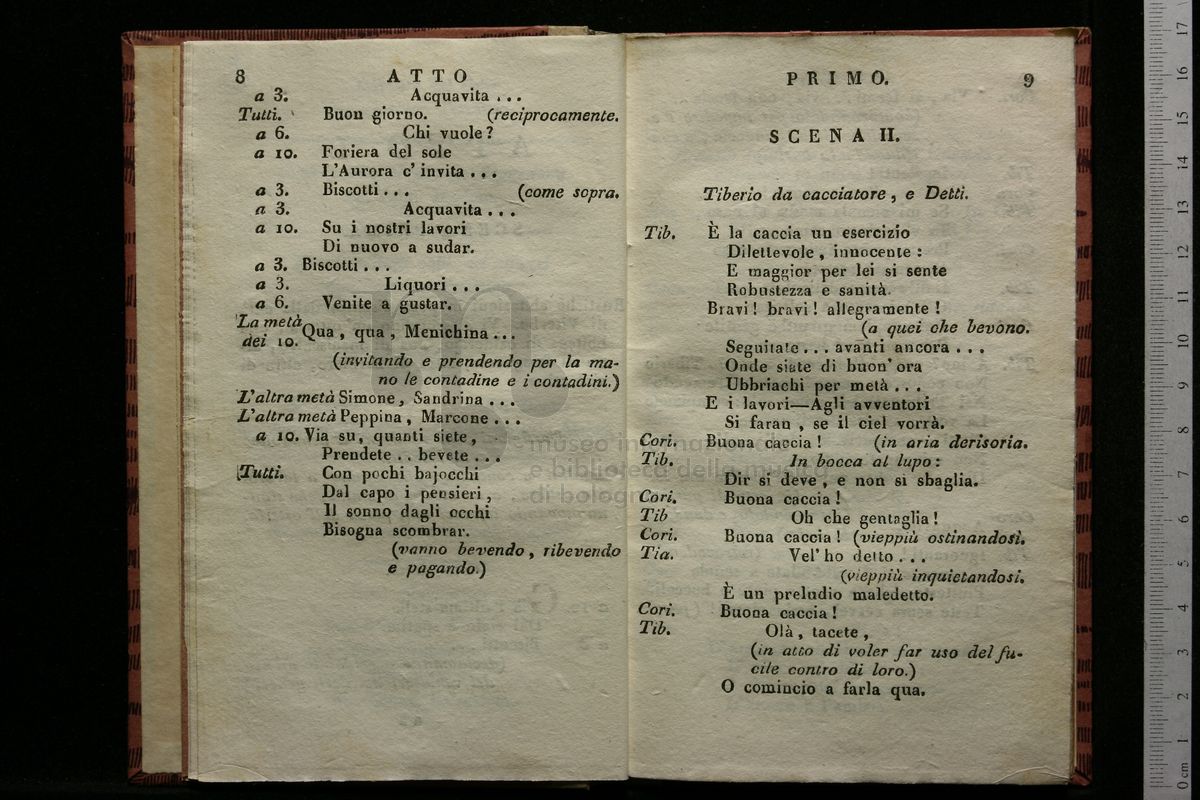 8 ATTO
a 3. Acquavita ...
Tutti. Buon giorno. (reciprocamente.
a 6. Chi vuole?
a 10. Foriera del sole
L'Aurora c' invita ...
a 3. Biscotti ... (come sopra.
a 3. Acquavita ...
a 10. Su i nostri lavori
Di nuovo a sudar.
a 3. Biscotti ...
a 3. Liquori ...
a 6. Venite a gustar.
La metà
dei 10. Qua, qua, Menichina ...
(invitando e prendendo per la ma-
no le contadine e i contadini.)
L'altra metà Simone, Sandrina ...
L'altra metà Peppina, Marcone ...
a 10. Via su, quanti siete,
Prendete .. bevete ...
Tutti. Con pochi bajocchi
Dal capo i pensieri,
Il sonno dagli occhi
Bisogna scombrar.
(vanno bevendo, ribevendo
e pagando.)
PRIMO. 9
SCENA II.
Tiberio da cacciatore, e Detti.
Tib. È la caccia un esercizio
Dilettevole, innocente:
E maggior per lei si sente
Robustezza e sanità.
Bravi! bravi! allegramente!
(a quei che bevono.
Seguitate ... avanti ancora ...
Onde siate di buon' ora
Ubbriachi per metà ...
E i lavori—Agli avventori
Si faran, se il ciel vorrà.
Cori. Buona caccia! (in aria derisoria.
Tib. In bocca al lupo:
Dir si deve, e non si sbaglia.
Cori. Buona caccia!
Tib Oh che gentaglia!
Cori. Buona caccia! (vieppiù ostinandosi.
Tia. Vel' ho detto ...
(vieppiù inquietandosi.
È un preludio maledetto.
Cori. Buona caccia!
Tib. Olà, tacete,
(in atto di voler far uso del fu-
cile contro di loro.)
O comincio a farla qua.
museo internazionale
e biblioteca della musica
di bologna
0 cm 1 2 3 4 5 6 7 8 9 10 11 12 13 14 15 16 17